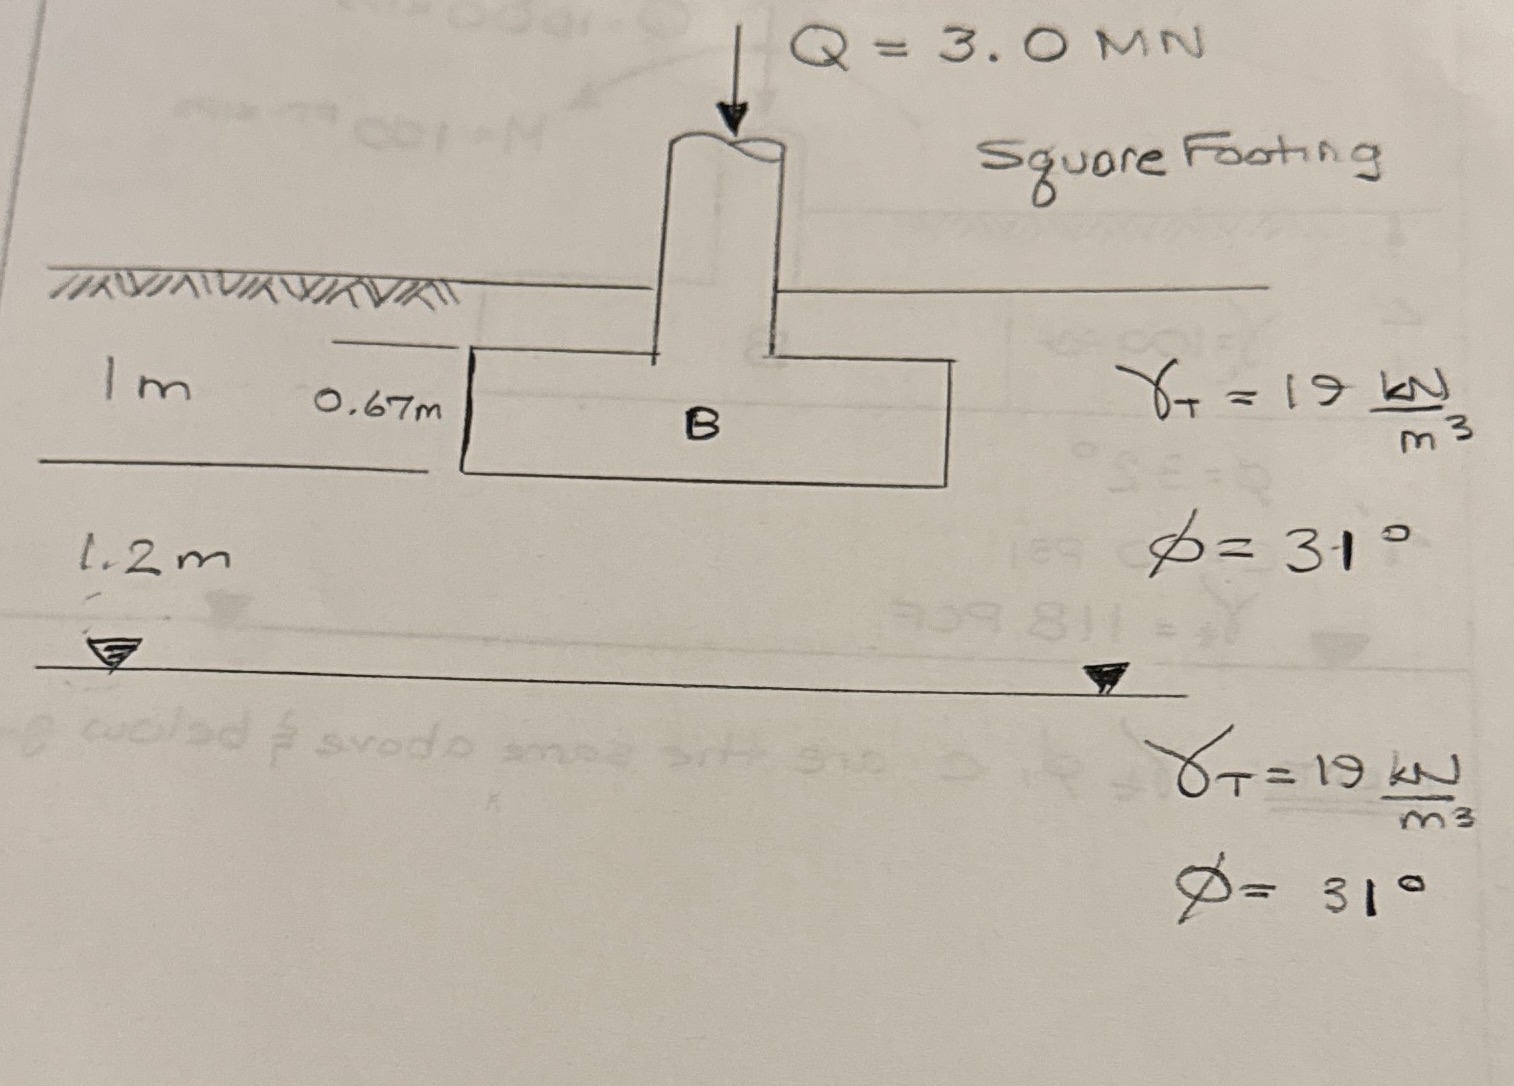 Q = 3.0 MN
Square Footing
1 m
0.67m
B
γT = 19 kN/m³
φ = 31°
1.2 m
γT = 19 kN/m³
φ = 31°